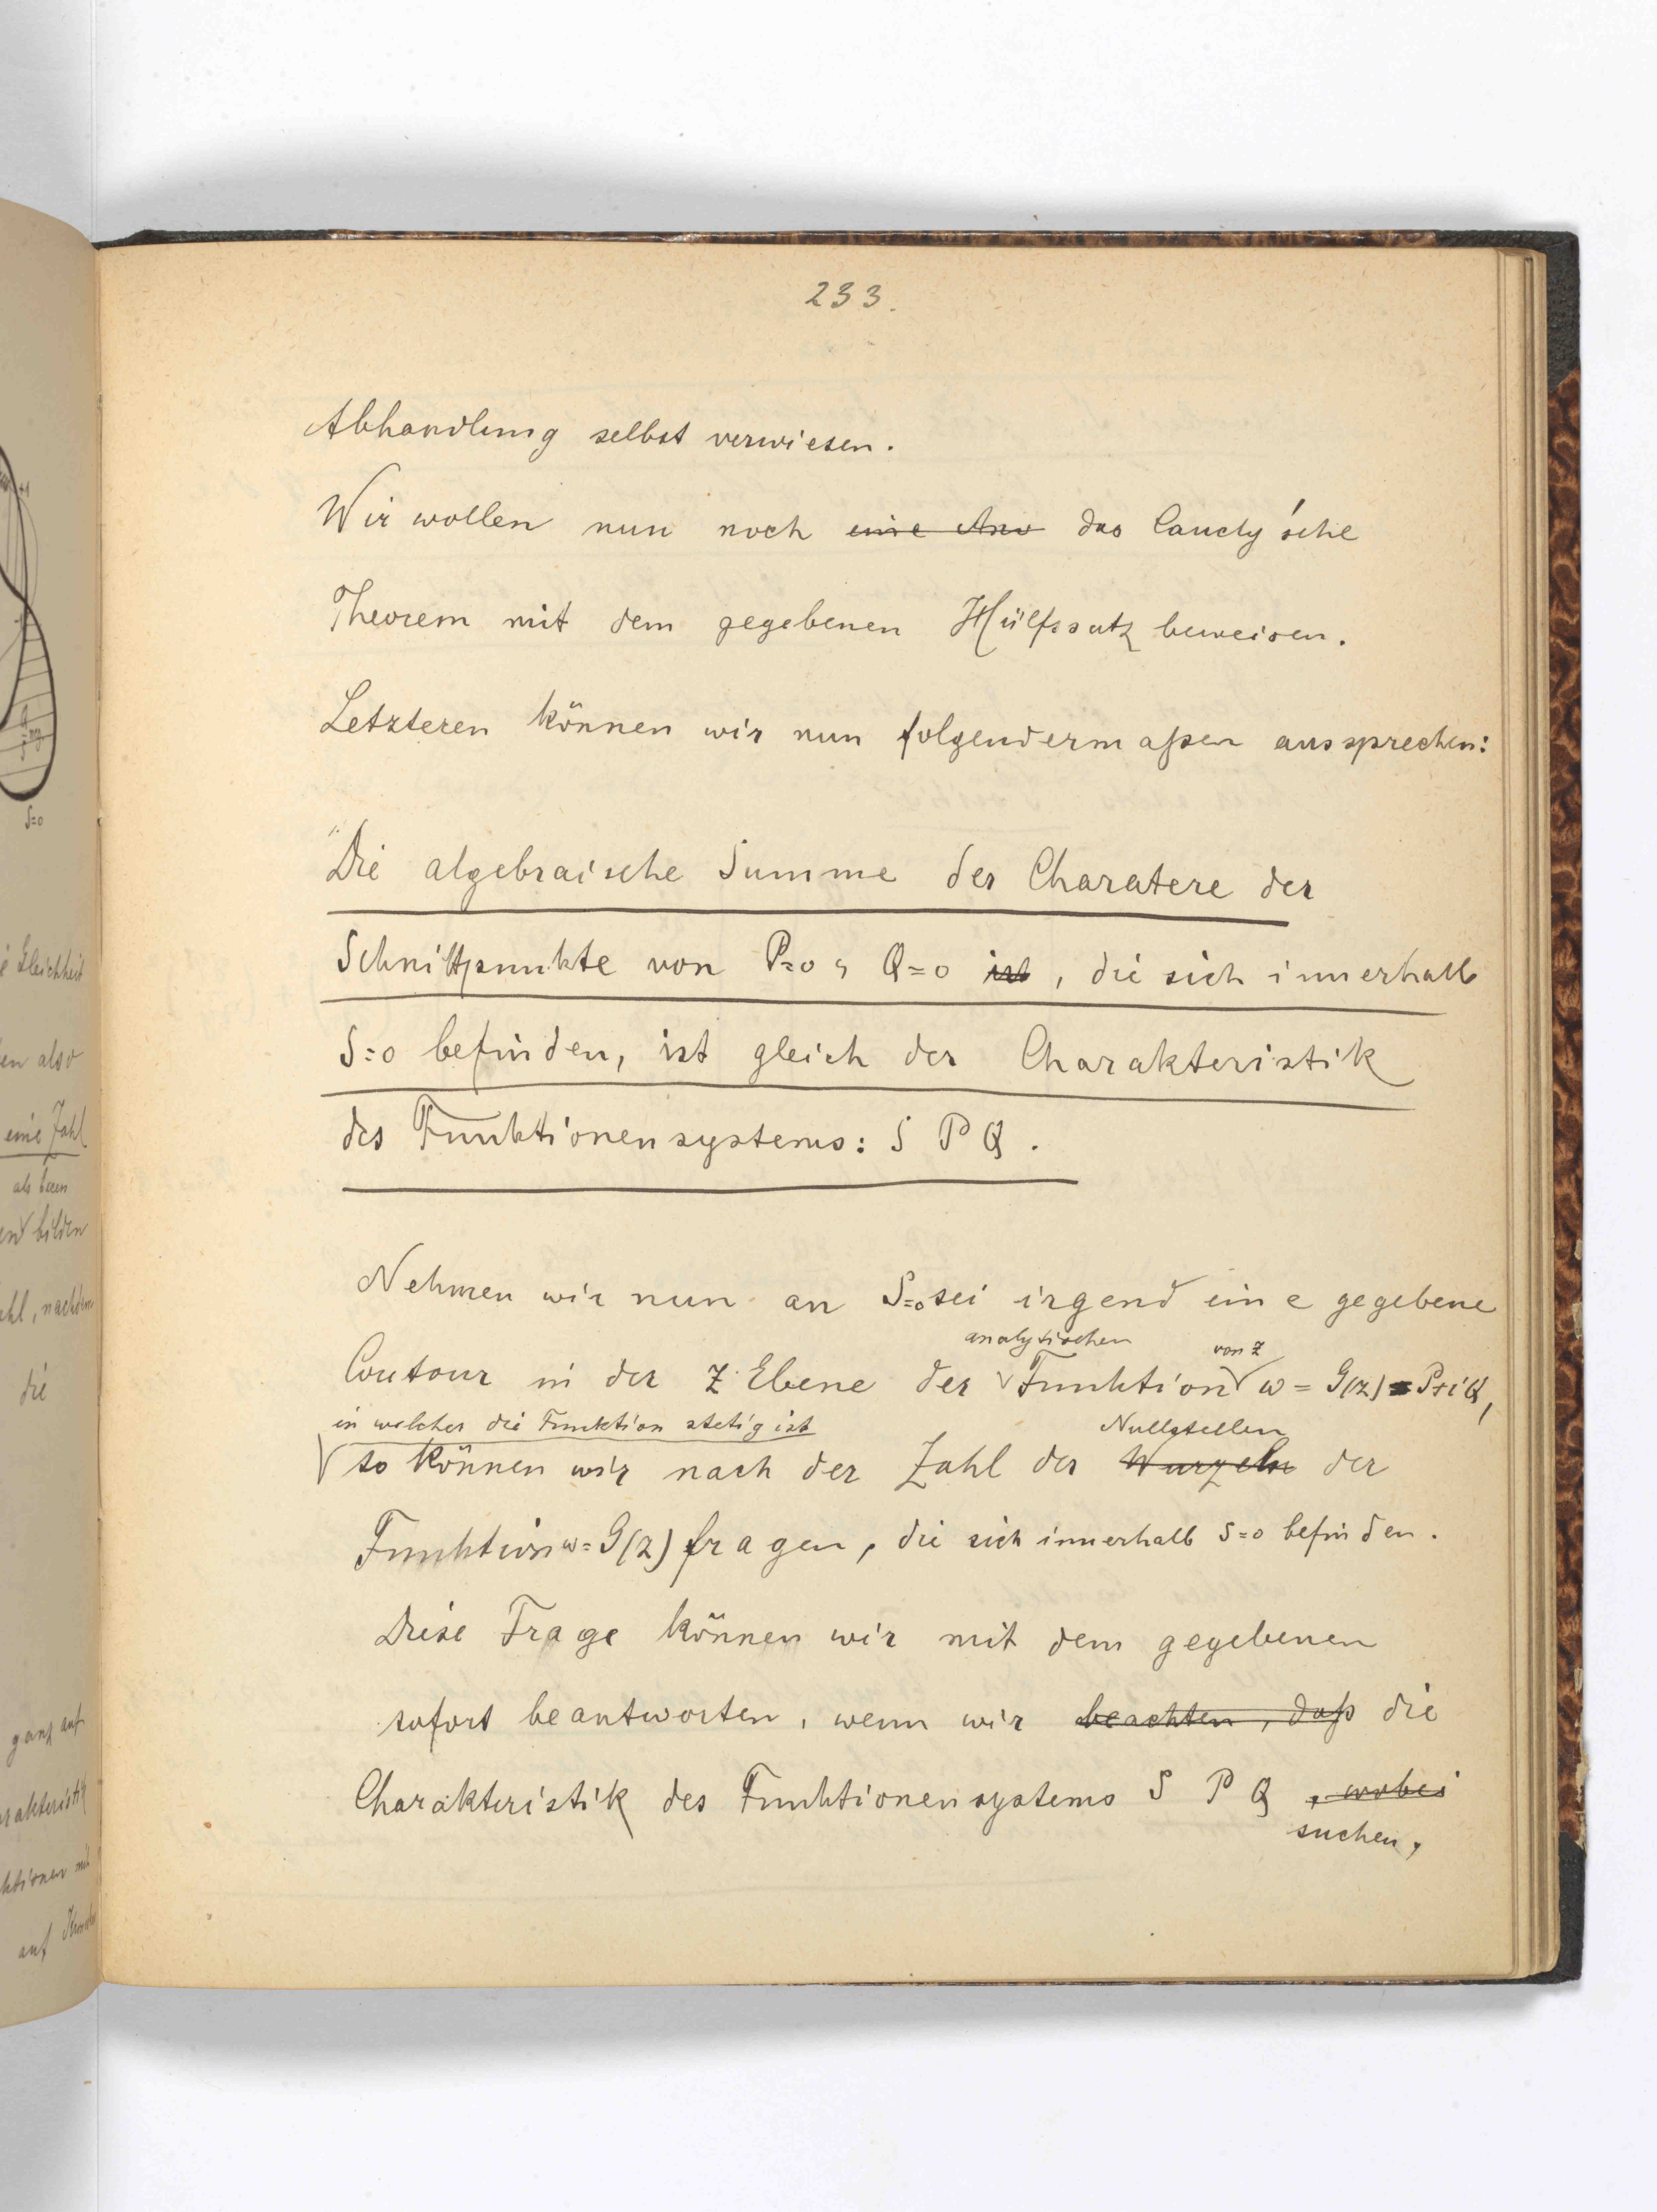 233.
Abhandlung selbst verwiesen.
Wir wollen nun noch eine Anw das Cauchy'sche
Theorem mit dem gegebenen Hülfssatz beweisen.
Letzteren können wir nun folgendermaßen aussprechen:
"Die algebraische Summe der Charatere der
Schnittpunkte von P=0, Q=0 ist, die sich innerhalb
S=0 befinden, ist gleich der Charakteristik
des Funktionensystems: S P Q.
Nehmen wir nun an S=0 sei irgend eine gegebene
analytischen von z
Contour in der z Ebene der Funktion w = G(z) = P+iQ,
in welcher die Funktion stetig ist Nullstellen
so können wir nach der Zahl der Wurzeln der
Funktion w=G(z) fragen, die sich innerhalb S=0 befinden.
Diese Frage können wir mit dem gegebenen
sofort beantworten, wenn wir beachten, daß die
Charakteristik des Funktionensystems S P Q, wobei
suchen,
S=0
e Gleichheit
en also
eine Zahl
als deren
end bilden
ahl, nachdem
die
ganz auf
arakteristik
ktionen mit
auf